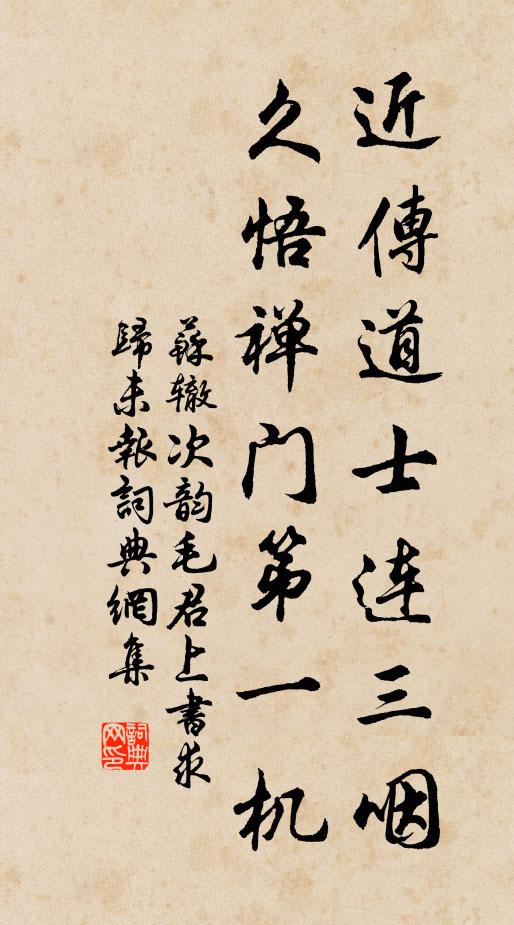 近傳道士連三咽
久悟禅门第一机
蘇辙次韵毛君上書求
歸未報詞典網集
詞典网印